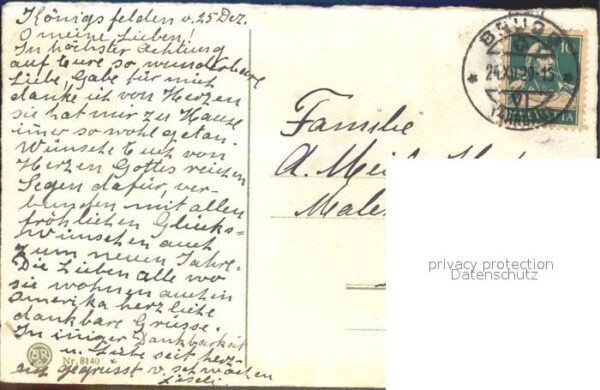 Königsfelden v. 25 Dez.
O meine Lieben!
In höchster Achtung
auf Eure so wunderbare
Liebe, Gabe für mich
danke ich von Herzen
sie hat mir zu Hause
imer so wohl getan.
Wünsche Euch von
Herzen Gottes reichen
Segen dafür, ver-
bunden mit allen
fröhlichen Glücks-
wünschen auch
zum neuen Jahre.
Die Lieben alle wo
sie wohnen auch in
Amerika herzliche
dankbare Grüsse.
In iniger Dankbarkeit
u. Liebe seit herz-
gegrüsst v. schwachen
Liseli.
BR
Nr. 8140
BRUGG
24.XII.29-15
10
HELVETIA
Familie
A.
privacy protection
Datenschutz